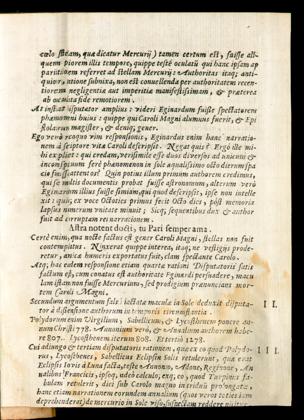 cœlo stellam, quæ dicatur Mercurij) tamen certum est, fuisse ali-
quem piorem illis tempore, quippe testē oculatū qui hanc ipsam ap
paritionem referret ad stellam Mercurij: Authoritas itaq; anti-
quior, ratione subnixa, non est conuellenda per authoritatem recen-
tiorem negligentiæ aut imperitiæ manifestissimam, & præterea
ab oculata fide remotiorem.
At instat disputator amplius: videri Eginardum fuisse spectatorem
phænomeni huius: quippe qui Caroli Magni alumnus fuerit, & Epi
magister, & deniq; gener.
Ego verò vim responsionis, Eginardus enim hanc narratio-
nem à scriptore vitæ Caroli descripsit. Negat quis? Ergò ille mi-
hi explicet: qui credam, verisimile esse duos diversos ad
incomptum ferè phænomenon in sole æqualissimo octo dierum spa
cio Quin potius illum primum authorem credimus,
qui se multis documentis probat fuisse astronomum, alterum verò
Eginardum illius fuisse simiam, qui quod descripsit, ipse non intelle
xit: quia, ex voce Octies primus fecit Octo dies, pòst memoriæ
lapsus numerum vnitate minuit; Sicq; sequentibus dux & author
fuit ad corruptam rei narrationem.
Astra notent docti, tu Pari semper ama.
Certè enim, qua nocte factus est gener Caroli Magni, stellas non fuit
contemplatus. Ninxerat quippe interea, itaq; ne vestigijs prode-
retur, amicæ humeris exportatus fuit, clam spectante Carolo.
Atq; hæc eadem responsio etiam quartæ rationi Disputatoris satis
factum est, cum conatus est authoritate Eginardi persuadere, macu
lam istam non fuisse Mercurium, sed prodigium prænuncians mor-
tem Caroli Magni.
Secundum argumentum salsè iactatæ maculæ in Sole deduxit disputa- II.
tor à dissensione authorum in temporis circumstantia.
Polydorum enim Virgilium, Sabellicum, & Lycosthenem ponere an-
num Christi 778. Annonium verò, & Annalium authorem
re 807. Lycosthenem iterum 808. Estentiū 1278.
Cui adiungo & tertiam disputatoris rationem, quia ex eo quod Polydo- III.
rus, Lycosthenes, Sabellicus Eclipsin Solis retulerint, quia erat
Eclipsis Iovis à Luna facta, teste Aunonio, Adone, Reginone, An-
nalibus Francicis, ipsoq; adeò calculo; erg, eo, quod Turpinus fa-
bulam retulerit, dici sub Carolo magno
hæc etiam narrationem eorundem annalium (quos verò testes iam
deprehenderat) de mercurio in Sole viso, suspectam reddere nititur.